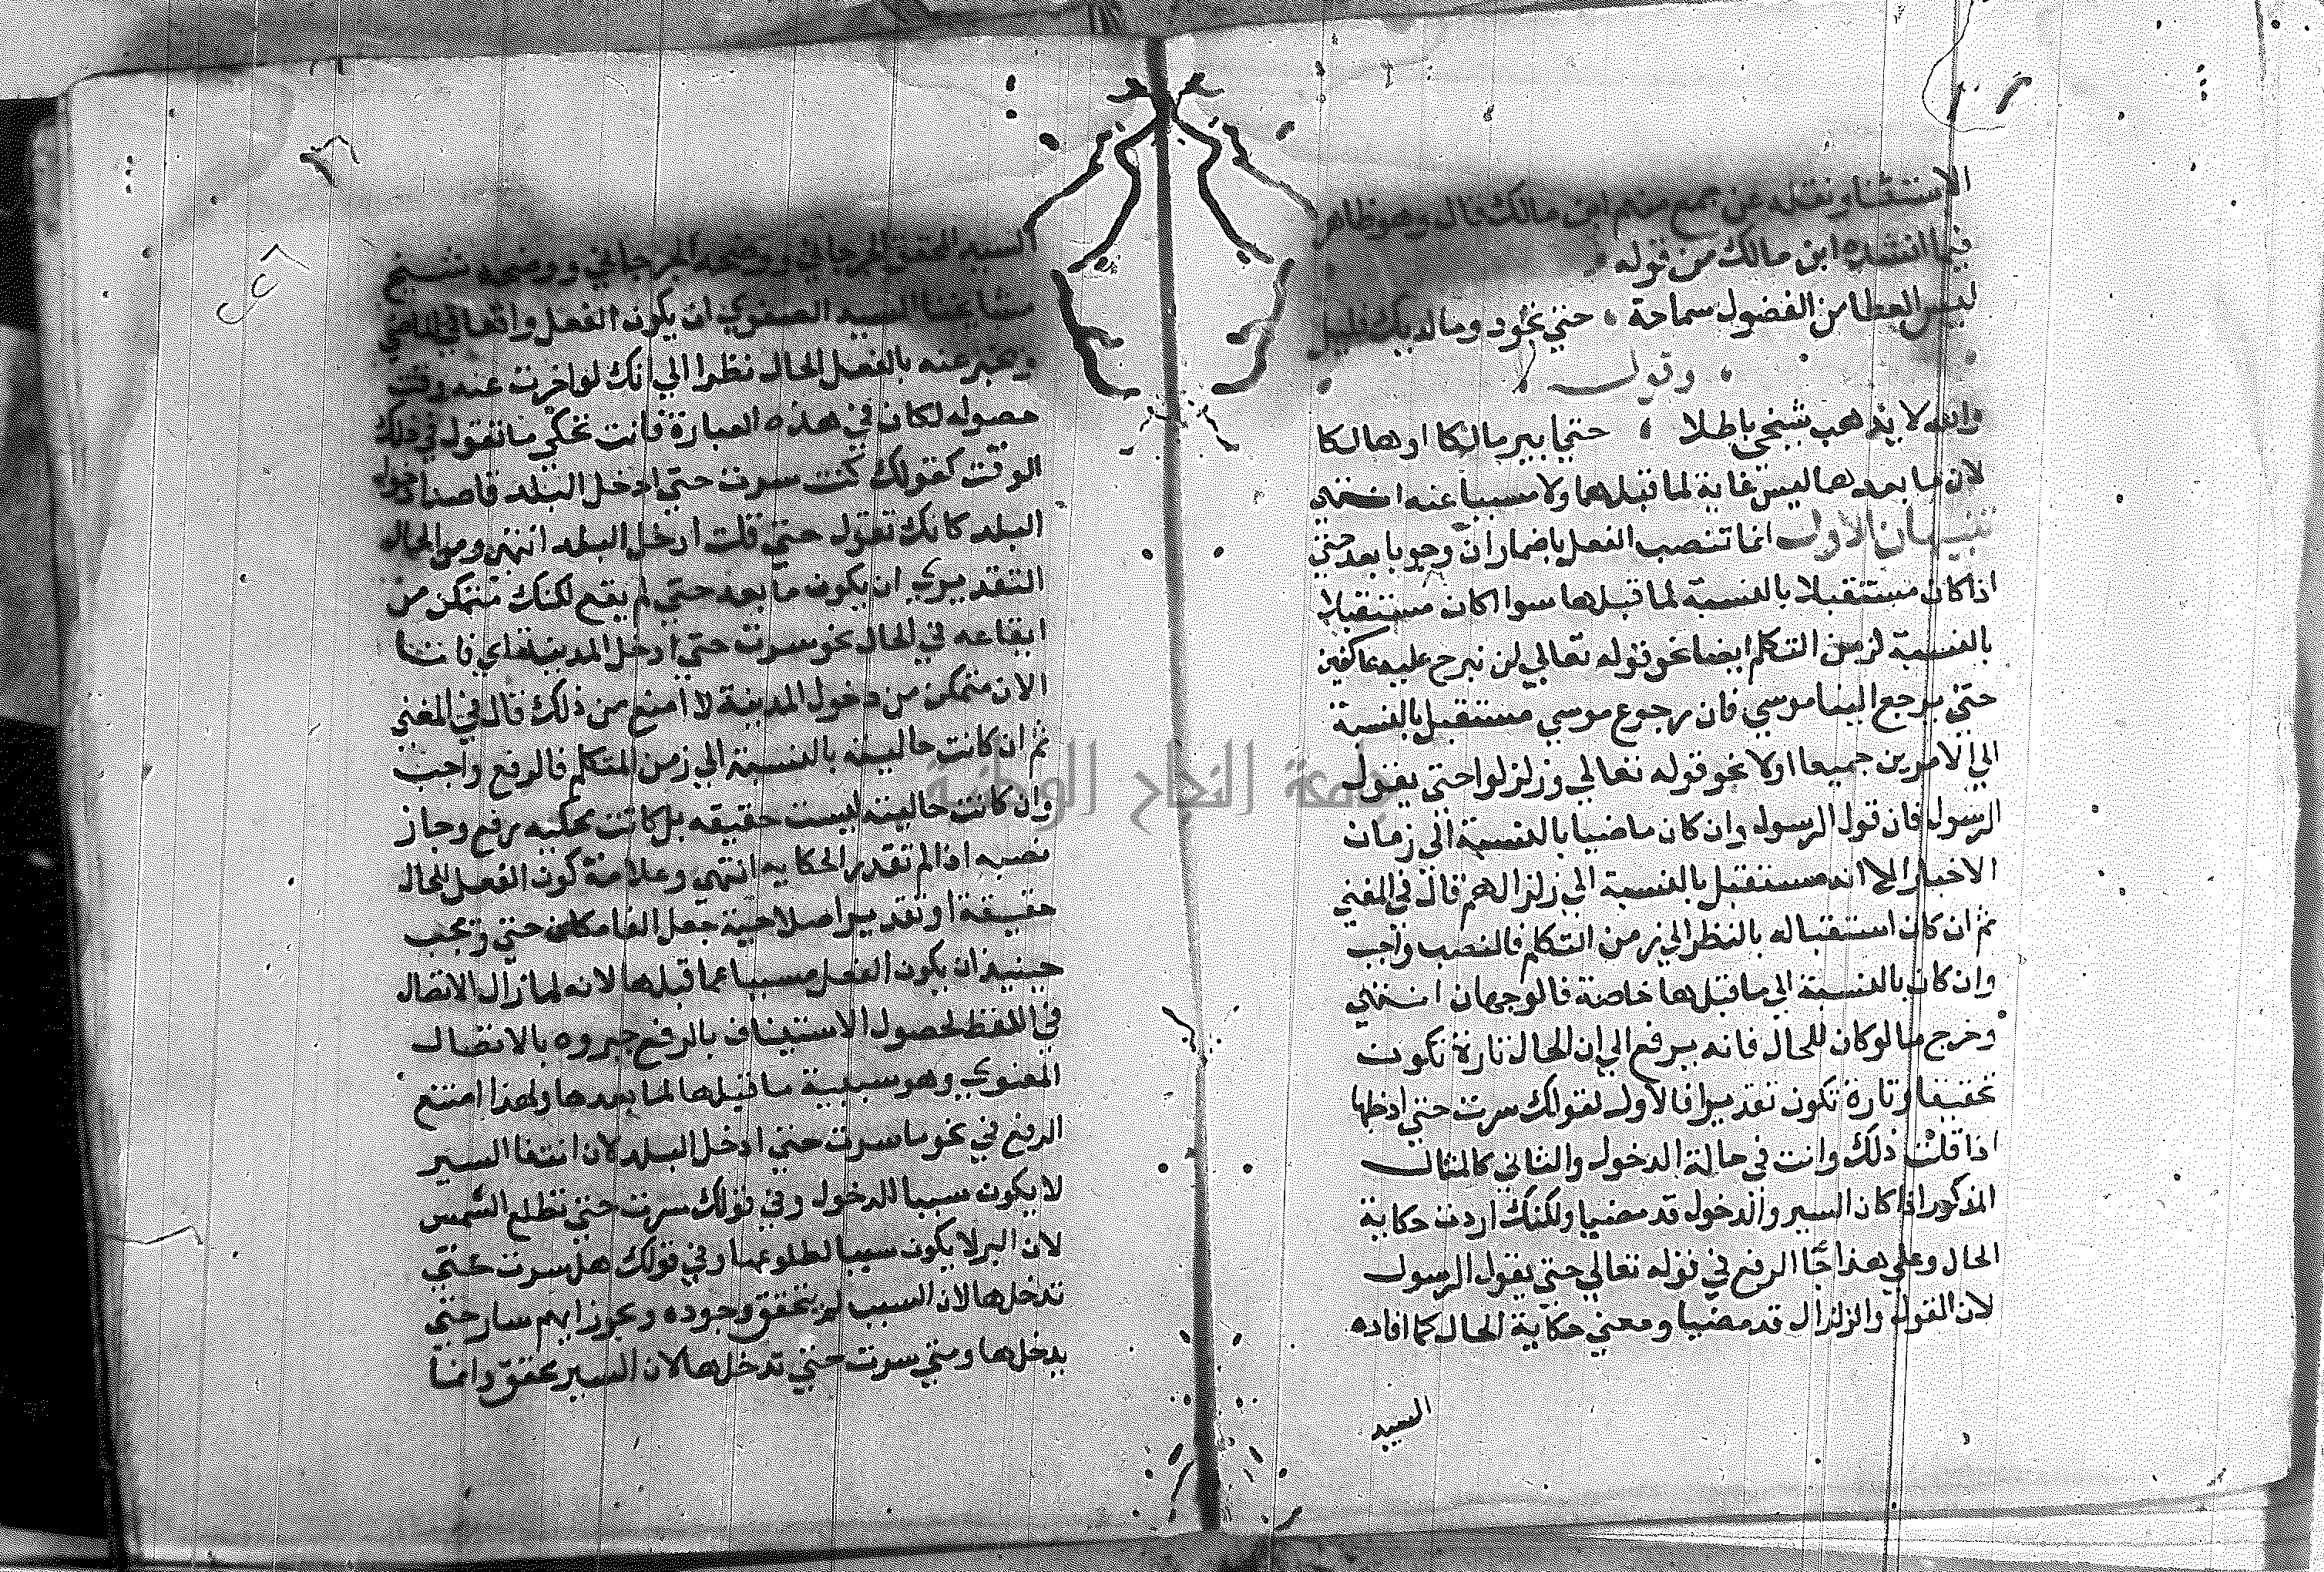 الاستثنا ونقله عن جمع منهم ابن مالك قال وهو ظاهر
فيما انشده ابن مالك من قوله
ليس العطا من الفضول سماحة حتي تجود وما لديك قليل
وقوله
والله لا يذهب شيخي باطلا حتي ابير مالكا او هالكا
لان ما بعدها ليس غاية لما قبلها ولا مسببا عنه انتهي
تنبيهان الاول انما تنصب الفعل باضمار ان وجوبا بعد حتي
اذا كان مستقبلا بالنسبة لما قبلها سوا اكان مستقبلا
بالنسبة لزمن التكلم ايضا نحو قوله تعالي لن نبرح عليه عاكفين
حتي يرجع الينا موسي فان رجوع موسي مستقبل بالنسبة
الي الامرين جميعا اولا نحو قوله تعالي وزلزلوا حتي يقول
الرسول فان قول الرسول وان كان ماضيا بالنسبة الي زمان
الاخبار الا انه مستقبل بالنسبة الي زلزالهم قال في المغني
ثم ان كان استقباله بالنظر الي زمن التكلم فالنصب واجب
وان كان بالنسبة الي ما قبلها خاصة فالوجهان انتهي
وخرج ما لو كان للحال فانه يرفع الي ان الحال تارة تكون
تحقيقا وتارة تكون تقديرا فالاول لقولك سرت حتي ادخلها
اذا قلت ذلك وانت في حالة الدخول والثاني كالمثال
المذكور اذا كان السير والدخول قد مضيا ولكنك اردت حكاية
الحال وعلي هذا جا الرفع في قوله تعالي حتي يقول الرسول
لان القول والزلزال قد مضيا ومعني حكاية الحال كما افاده
السيد
السيد المحقق الجرجاني ووضحه الجرجاني ووضحه شيخ
مشايخنا السيد الصفوي ان يكون الفعل واقعا في الماضي
وتخبر عنه بالفعل الحال نظرا الي انك لو اخرت عنه وقت
حصوله لكان في هذه العبارة فانت تحكي ما تقول في ذلك
الوقت كقولك كنت سرت حتي ادخل البلد قاصدا دخول
البلد كانك تقول حتي قلت ادخل البلد انتهي ومن الحال
التقديري ان يكون ما بعد حتي لم يقع لكنك متمكن من
ايقاعه في الحال نحو سرت حتي ادخل المدينة اي فانا
الان متمكن من دخول المدينة لا امنع من ذلك قال في المغني
ثم ان كانت حاليته بالنسبة الي زمن المتكلم فالرفع واجب
وان كانت حاليته ليست حقيقه بل كانت محكيه رفع وجاز
نصبه اذا لم تقدر الحكايه انتهي وعلامة كون الفعل للحال
حقيقة او تقديرا صلاحية جعل الفا مكان حتي ويجب
حينيذ ان يكون الفعل مسببا عما قبلها لانه لما زال الاتصال
في اللفظ لحصول الاستيناف بالرفع جبروه بالاتصال
المعنوي وهو سببية ما قبلها لما بعدها ولهذا امتنع
الرفع في نحو ما سرت حتي ادخل البلد لان انتفا السير
لا يكون سببا للدخول وفي قولك سرت حتي تطلع الشمس
لان البر لا يكون سببا لطلوعها وفي قولك هل سرت حتي
تدخلها لان السبب لم يتحقق وجوده ويجوز ايهم سار حتي
يدخلها ومتي سرت حتي تدخلها لان السير محقق وانما
جامعة النجاح الوطنية